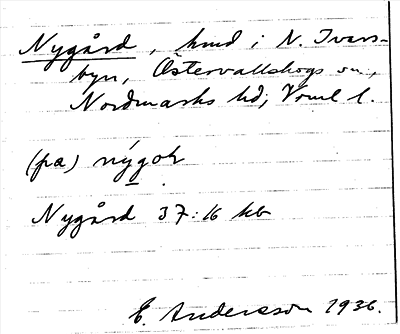 Nygård, hmd i N. Ivars-
byn, Östervallskogs sn,
Nordmarks hd, Vrml l.
(pa) nýgoʀ
Nygård 37:16 kb
E. Andersson 1936.